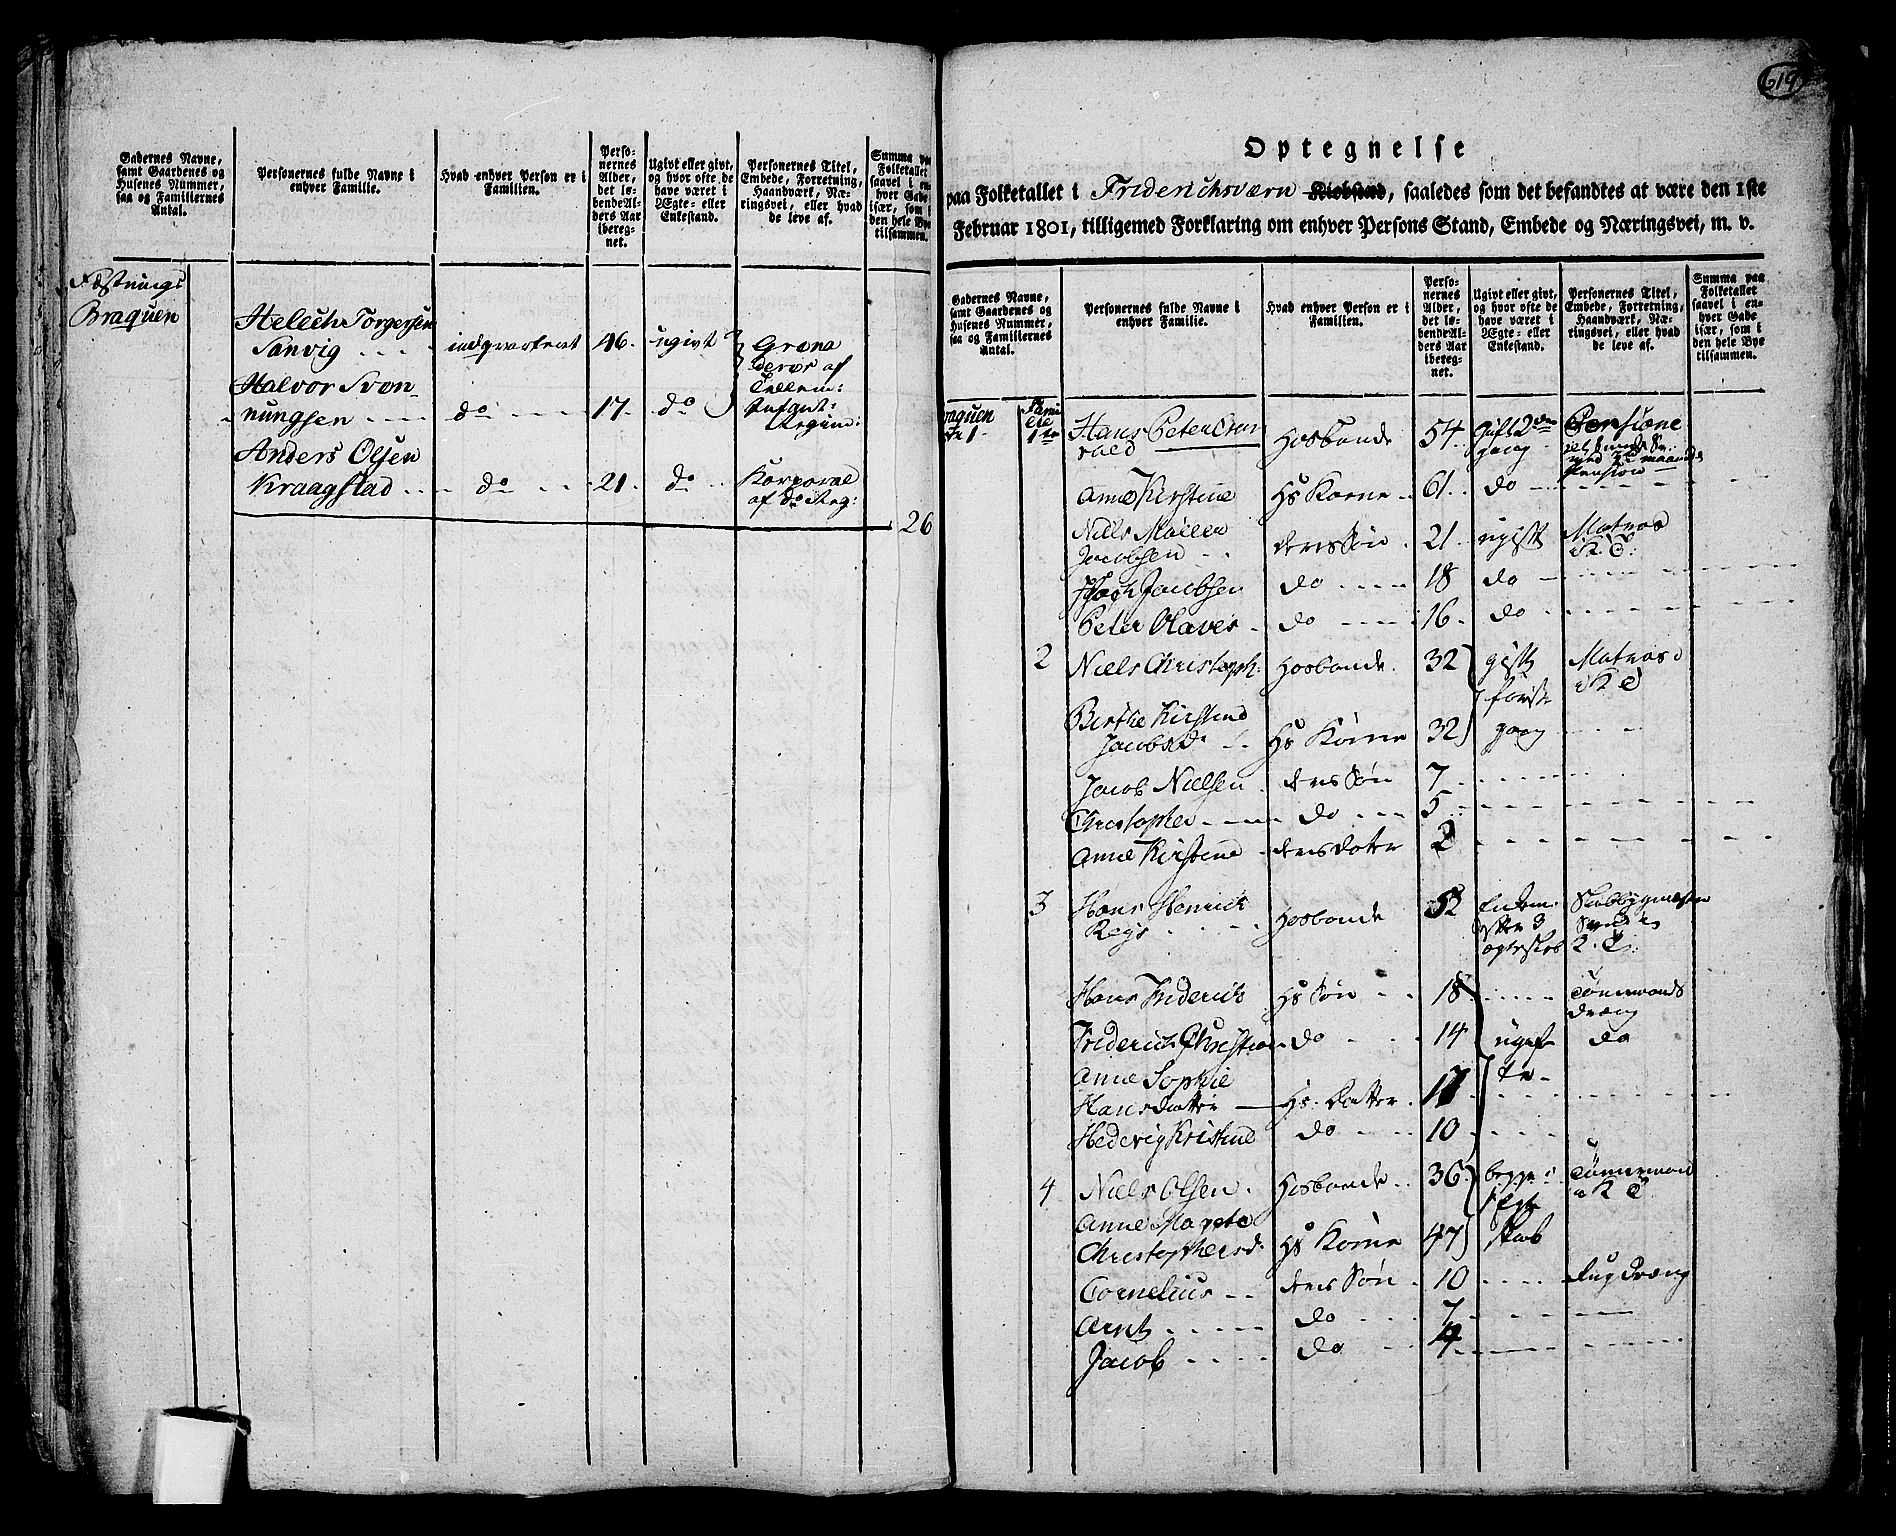 Gadernes Navne,
samt Gaardenes og
Husenes Nummer,
saa og Familiernes
Antal.
Personernes fulde Navne i
enhver Familie.
Hvad enhver Person er i
Familien.
Perso-
nernes
Alder,
det lø-
bende Al-
ders Aar
ibereg-
net.
Ugivt eller givt,
og hvor ofte de
have været i
Ægte- eller
Enkestand.
Personernes Titel,
Embede, Forretning,
Haandværk, Næ-
ringsvei, eller hvad
de leve af.
Summa paa
Folketallet
saavel i en-
hver Gade
især, som i
den hele Bye
tilsammen.
Fæstnings
Braquen
Helech Torgersen
Sanvig indqvarteret 46. ugivt Grena
derer af
Tellem:
Infant:
Regim:
Halvor Svæn-
nungsen do 17. do
Anders Olsen
Kraagstad do 21. do Korporal
af do Reg:
26
619
Optegnelse
paa Folketallet i Friderichsværn Kiøbsted, saaledes som det befandtes at være den 1ste
Februar 1801, tilligemed Forklaring om enhver Persons Stand, Embede og Næringsvei, m. v.
Gadernes Navne,
samt Gaardenes og
Husenes Nummer,
saa og Familiernes
Antal.
Personernes fulde Navne i
enhver Familie.
Hvad enhver Person er i
Familien.
Perso-
nernes
Alder,
det lø-
bende Al-
ders Aar
ibereg-
net.
Ugivt eller givt,
og hvor ofte de
have været i
Ægte- eller
Enkestand.
Personernes Titel,
Embede, Forretning,
Haandværk, Næ-
ringsvei, eller hvad
de leve af.
Summa paa
Folketallet
saavel i en-
hver Gade
især, som i
den hele Bye
tilsammen.
Hans Peter
Hosbonde 54 Gift 2den
gang
Pension
Anne Kirstine Hs Kone 61. do
Niels Møller
Jacobsen deres Søn 21. ugift Matros
Jacobsen do 18 do
Peter Olaves do 16. do
2 Niels Christoph. Hosbonde 32 gift
første
gang
Matros i
K T
Berthe Kirstine
Jacobsd. Hs Kone 32
Jacob Nielsen deres Søn 7
Christopher do 5
Anne Kirstine deres dater 2
3 Hans Henrich
Hosbonde 52
efter 3
Ægteskab
Skibbygmester
Svend i
K. T.
Hans Friderich Hs Søn 18 Tømermands
dræng
Friderich Christian do 14 ugif- do
te
Anne Sophie
Hansdatter Hs. Datter 17
Hedevig Kristine do 10
4 Niels Olsen Hosbonde 36 begge i
Egte
skab
Tømermand
i K T
Anne Marete
Christophersd. Hs Kone 47
Cornelius deres Søn 10
Arnt do 7
Jacob do 4